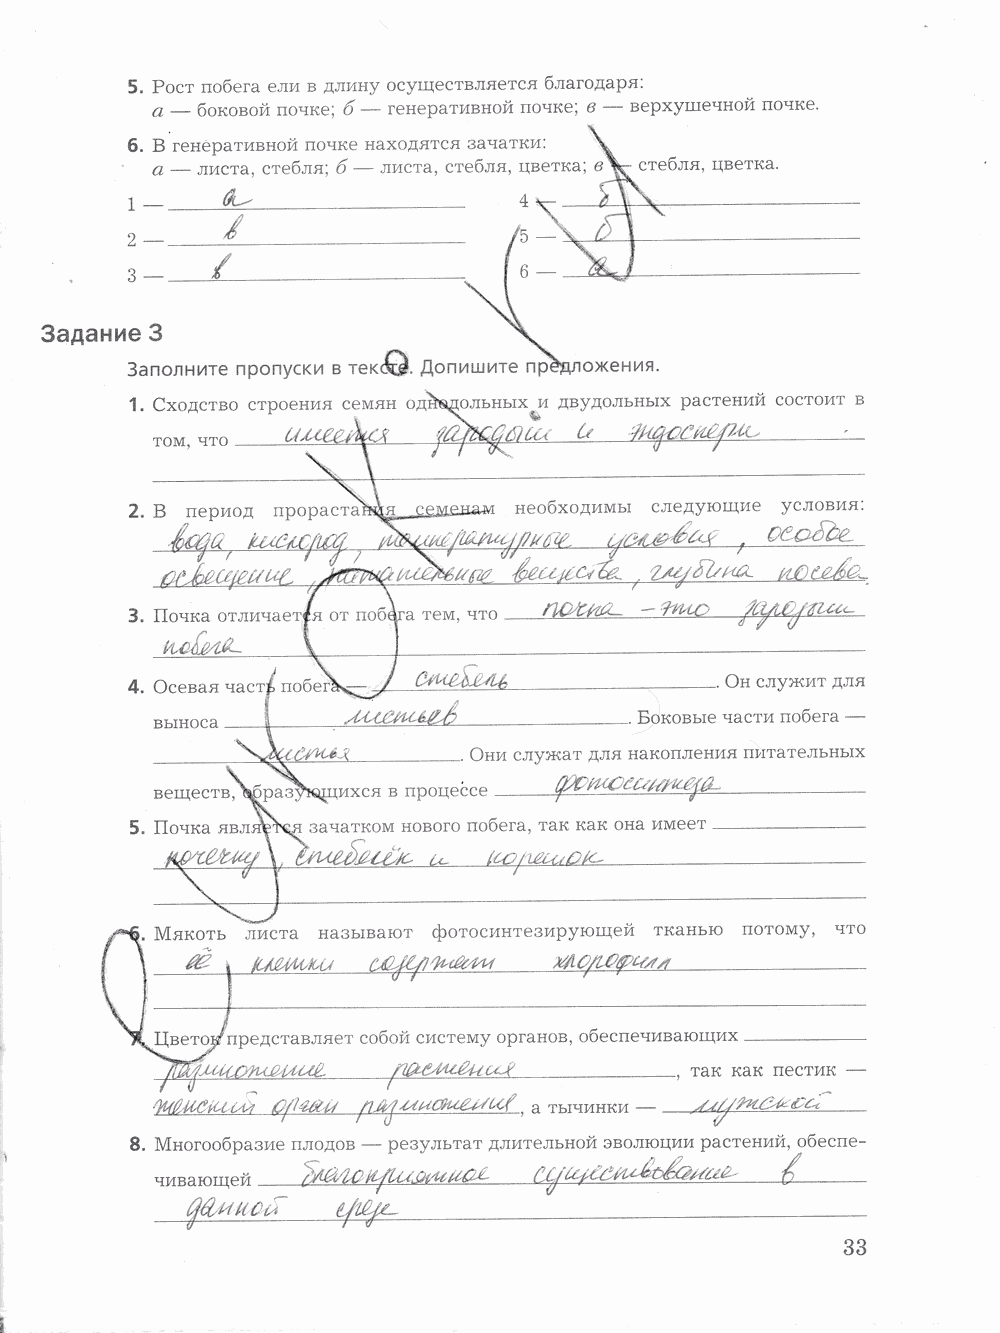 5. Рост побега ели в длину осуществляется благодаря:
а — боковой почке; б — генеративной почке; в — верхушечной почке.
6. В генеративной почке находятся зачатки:
а — листа, стебля; б — листа, стебля, цветка; в — стебля, цветка.
1 — а 4 — б
2 — в 5 — б
3 — в 6 — а
Задание 3
Заполните пропуски в тексте. Допишите предложения.
1. Сходство строения семян однодольных и двудольных растений состоит в
том, что имеется зародыш и эндосперм
2. В период прорастания семенам необходимы следующие условия:
вода, кислород, температурные условия, особое
освещение, питательные вещества, глубина посева.
3. Почка отличается от побега тем, что почка – это зародыш
побега
4. Осевая часть побега — стебель. Он служит для
выноса листьев. Боковые части побега —
листья. Они служат для накопления питательных
веществ, образующихся в процессе фотосинтеза
5. Почка является зачатком нового побега, так как она имеет
почечку, стебелёк и корешок
6. Мякоть листа называют фотосинтезирующей тканью потому, что
её клетки содержат хлорофилл
7. Цветок представляет собой систему органов, обеспечивающих
размножение растения, так как пестик —
женский орган размножения, а тычинки — мужской
8. Многообразие плодов — результат длительной эволюции растений, обеспе-
чивающей благоприятное существование в
данной среде
33